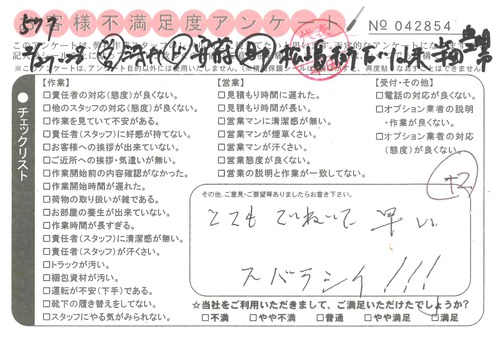 お客様不満足度アンケート
No 042854
【作業】
□責任者の対応(態度)が良くない。
□他のスタッフの対応(態度)が良くない。
□作業を見ていて不安がある。
□責任者(スタッフ)に好感が持てない。
□お客様への挨拶が出来ていない。
□ご近所への挨拶・気遣いが無い。
□作業開始前の内容確認がなかった。
□作業開始時間が遅れた。
□荷物の取り扱いが雑である。
□お部屋の養生が出来ていない。
□作業時間が長すぎる。
□責任者(スタッフ)に清潔感が無い。
□責任者(スタッフ)が汗くさい。
□トラックが汚い。
□梱包資材が汚い。
□運転が不安(下手)である。
□靴下の履き替えをしてない。
□スタッフにやる気がみられない。
【営業】
□見積もり時間に遅れた。
□見積り時間が長い。
□営業マンに清潔感が無い。
□営業マンが煙草くさい。
□営業マンが汗くさい。
□営業態度が良くない。
□営業の説明と作業が一致してない。
【受付・その他】
□電話の対応が良くない。
□オプション業者の説明
・作業が良くない。
□オプション業者の対応
(態度)が良くない。
●チェックリスト
その他、ご意見・ご要望等ありましたらお書き下さい。
とても ていねいで 早い
スバラシイ!!!
☆当社をご利用いただきまして、ご満足いただけたでしょうか?
□不満 □やや不満 □普通 □やや満足 □満足